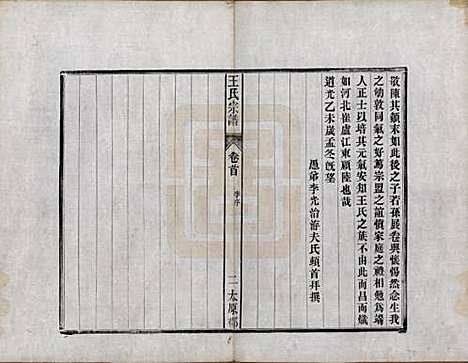 敬陳其顛末如此後之子若孫展卷興懷惕然念生我
之劬敦同氣之好篤宗盟之誼慎家庭之禮相勉為端
人正士以培其元氣安知王氏之族不由此而昌而熾
如河北崔盧江東顧陸也哉
道光乙未歲孟冬既望
愚弟李光治海夫氏頓首拜撰
王氏宗譜
卷首
李序
二
太原郡